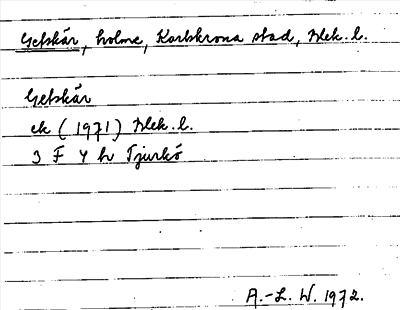 Getskär, holme, Karlskrona stad, Blek. l.
Getskär
ek (1971) Blek. l.
3 F 4 h Tjurkö
A.-L. W. 1972.